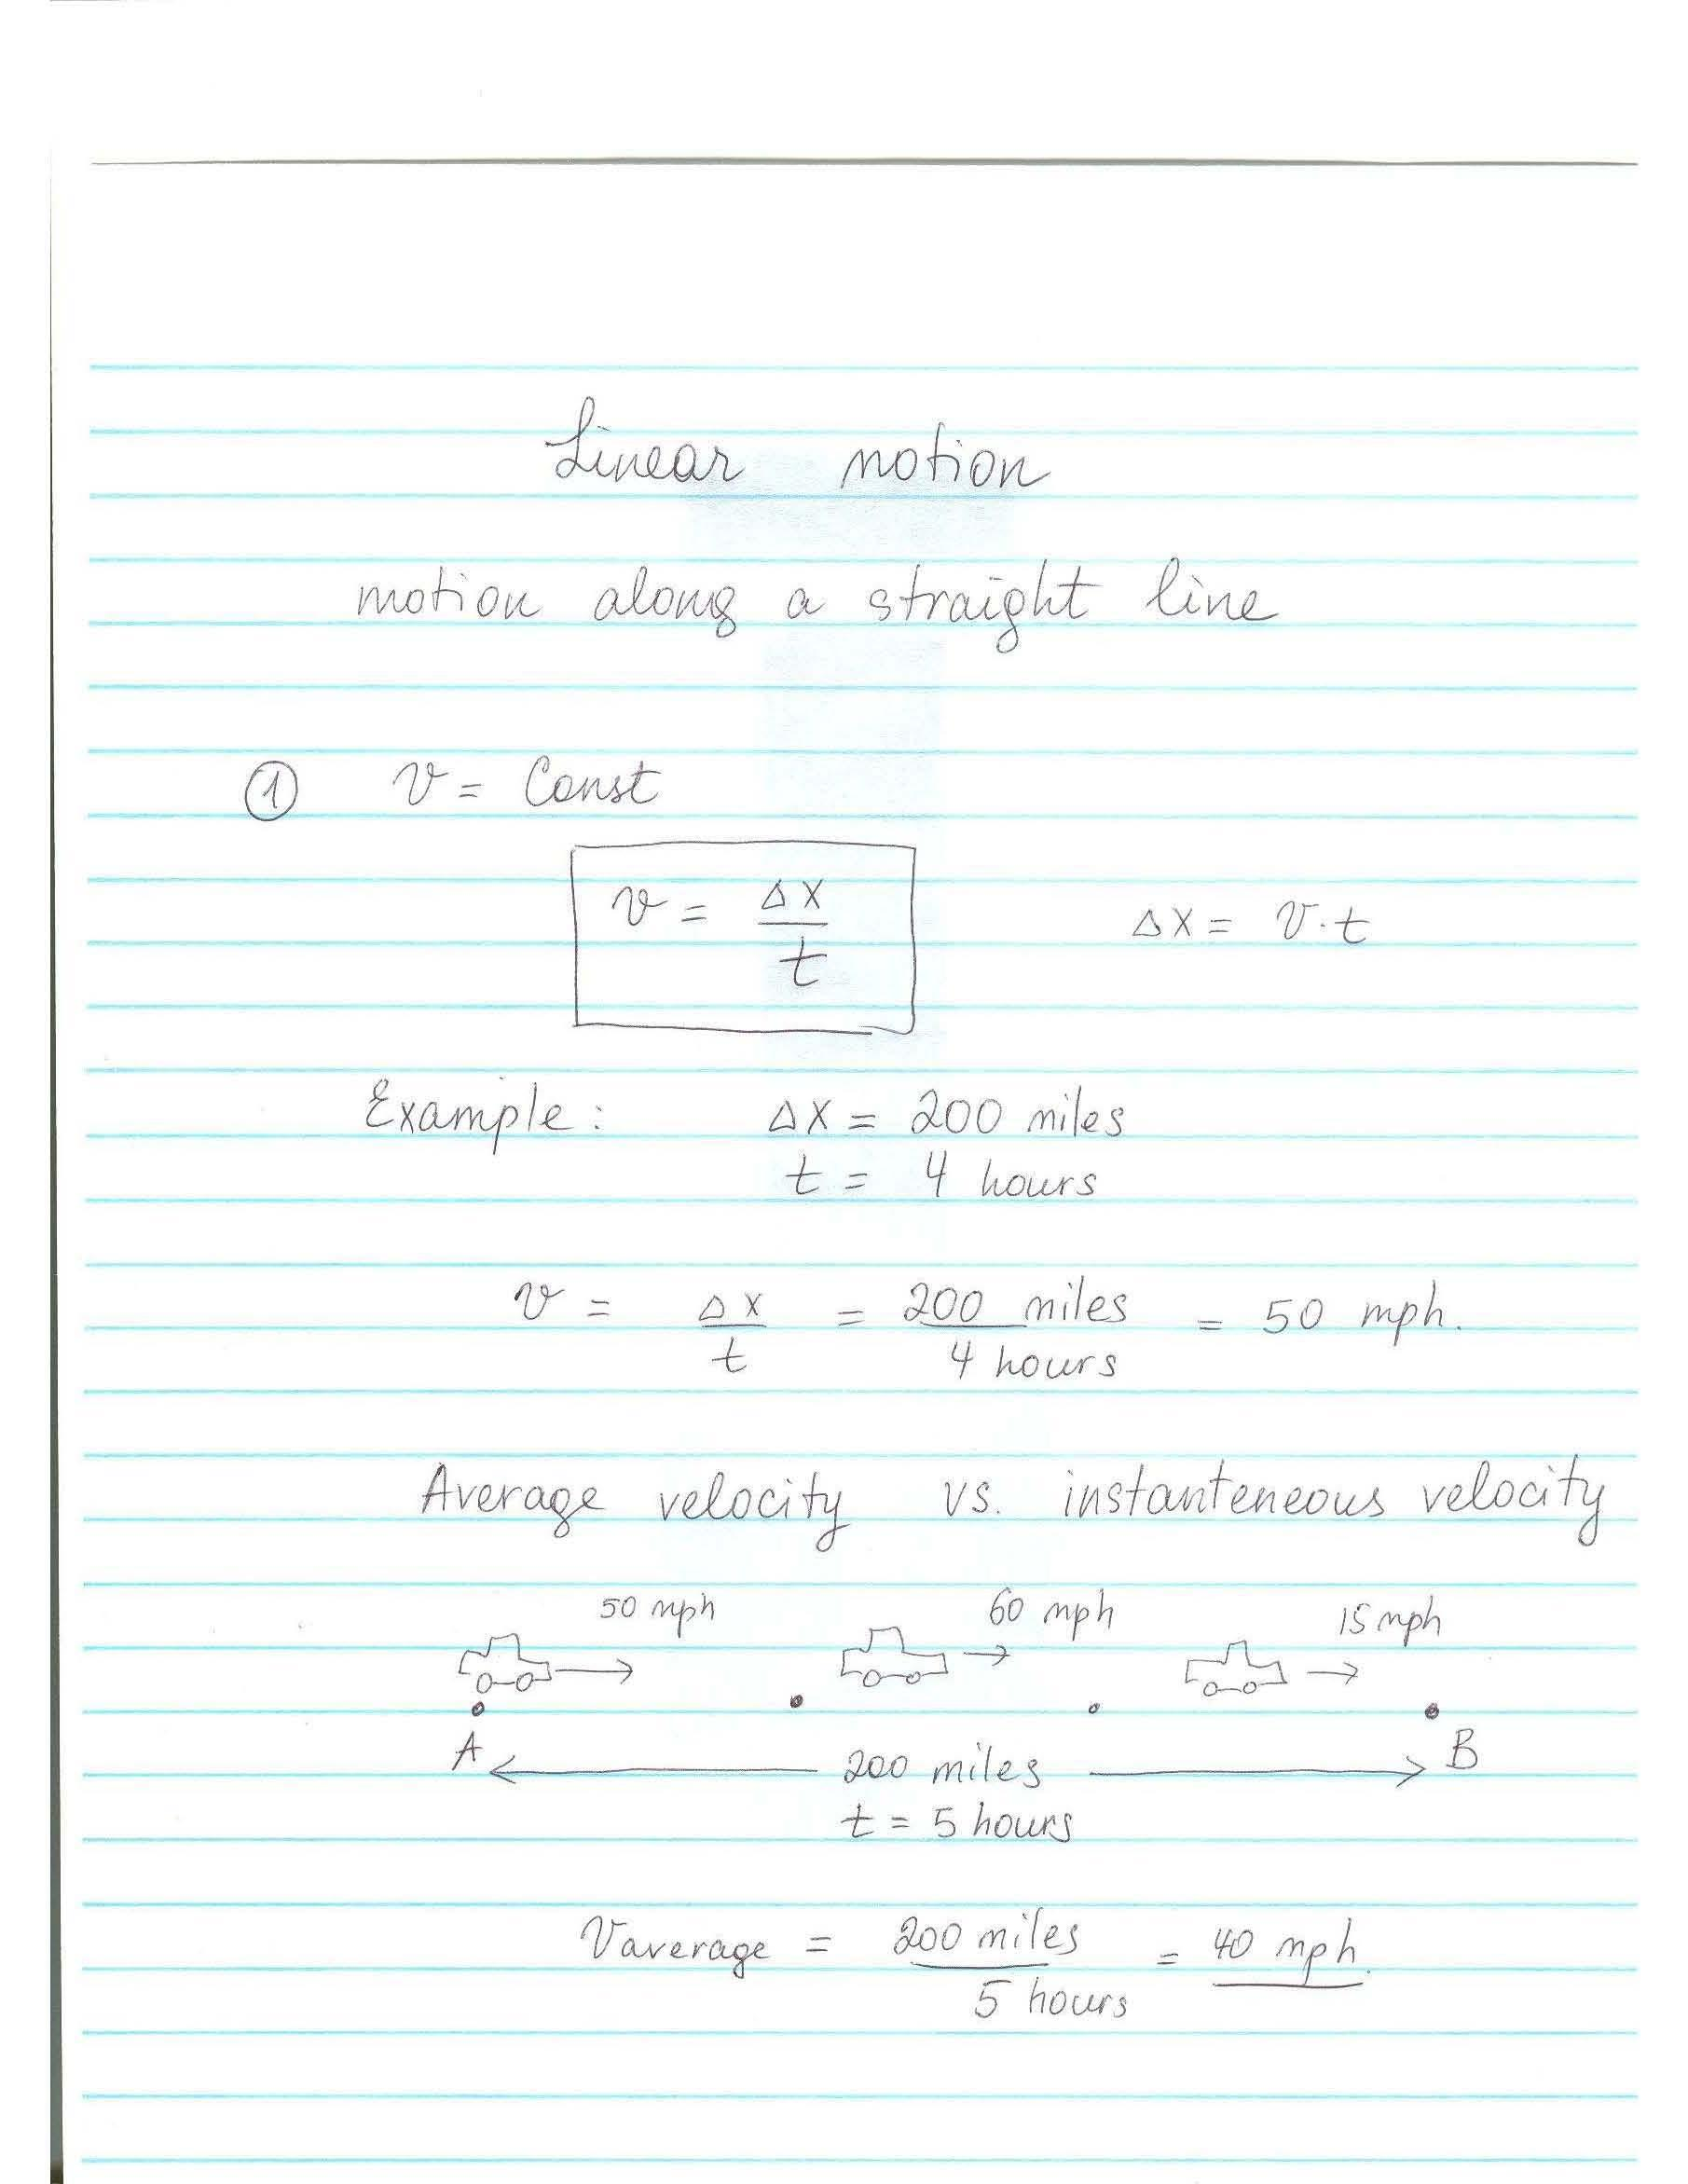 Linear motion
motion along a straight line
① v = Const
v = Δx / t    Δx = v·t
Example: Δx = 200 miles
t = 4 hours
v = Δx / t = 200 miles / 4 hours = 50 mph.
Average velocity vs. instanteneous velocity
50 mph 60 mph 15 mph
A 200 miles B
t = 5 hours
Vaverage = 200 miles / 5 hours = 40 mph.